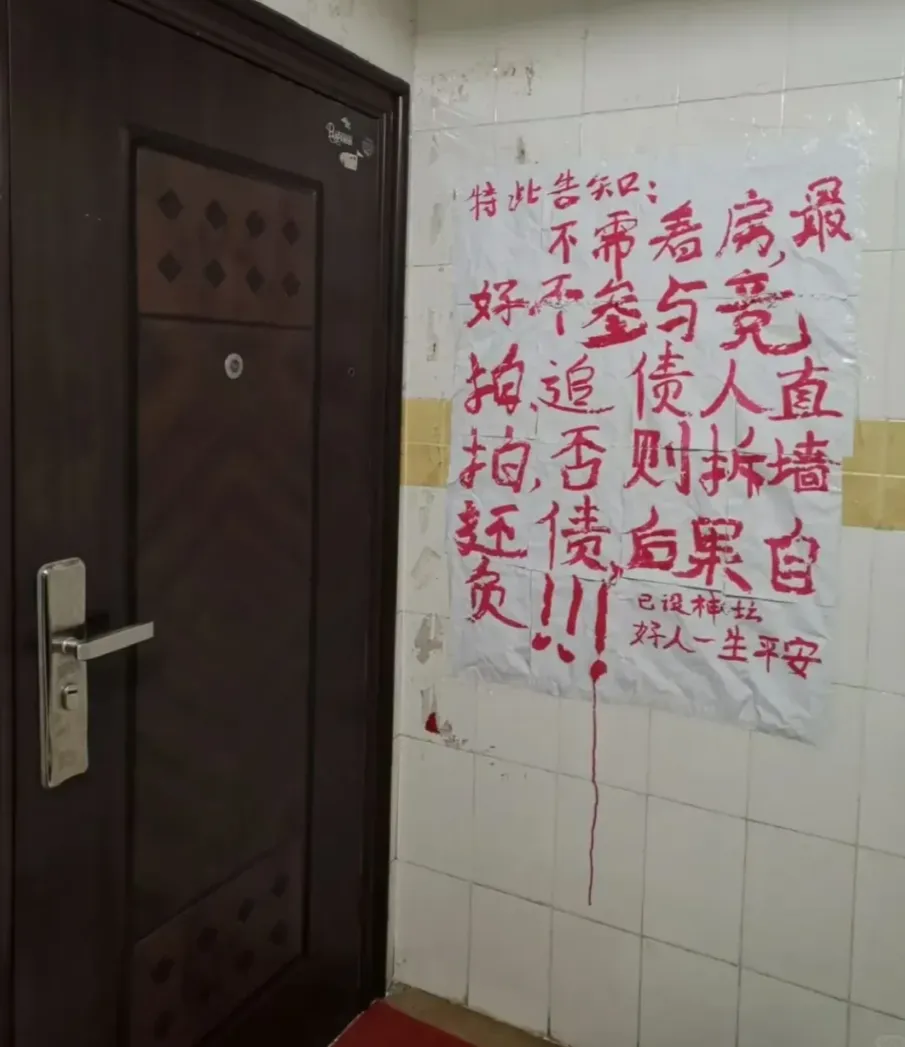 特此告知：
不需看房,最
好不参与竞
拍、追债人直
拍,否则拆墙
还债,后果自
负!!!
已设神坛
好人一生平安